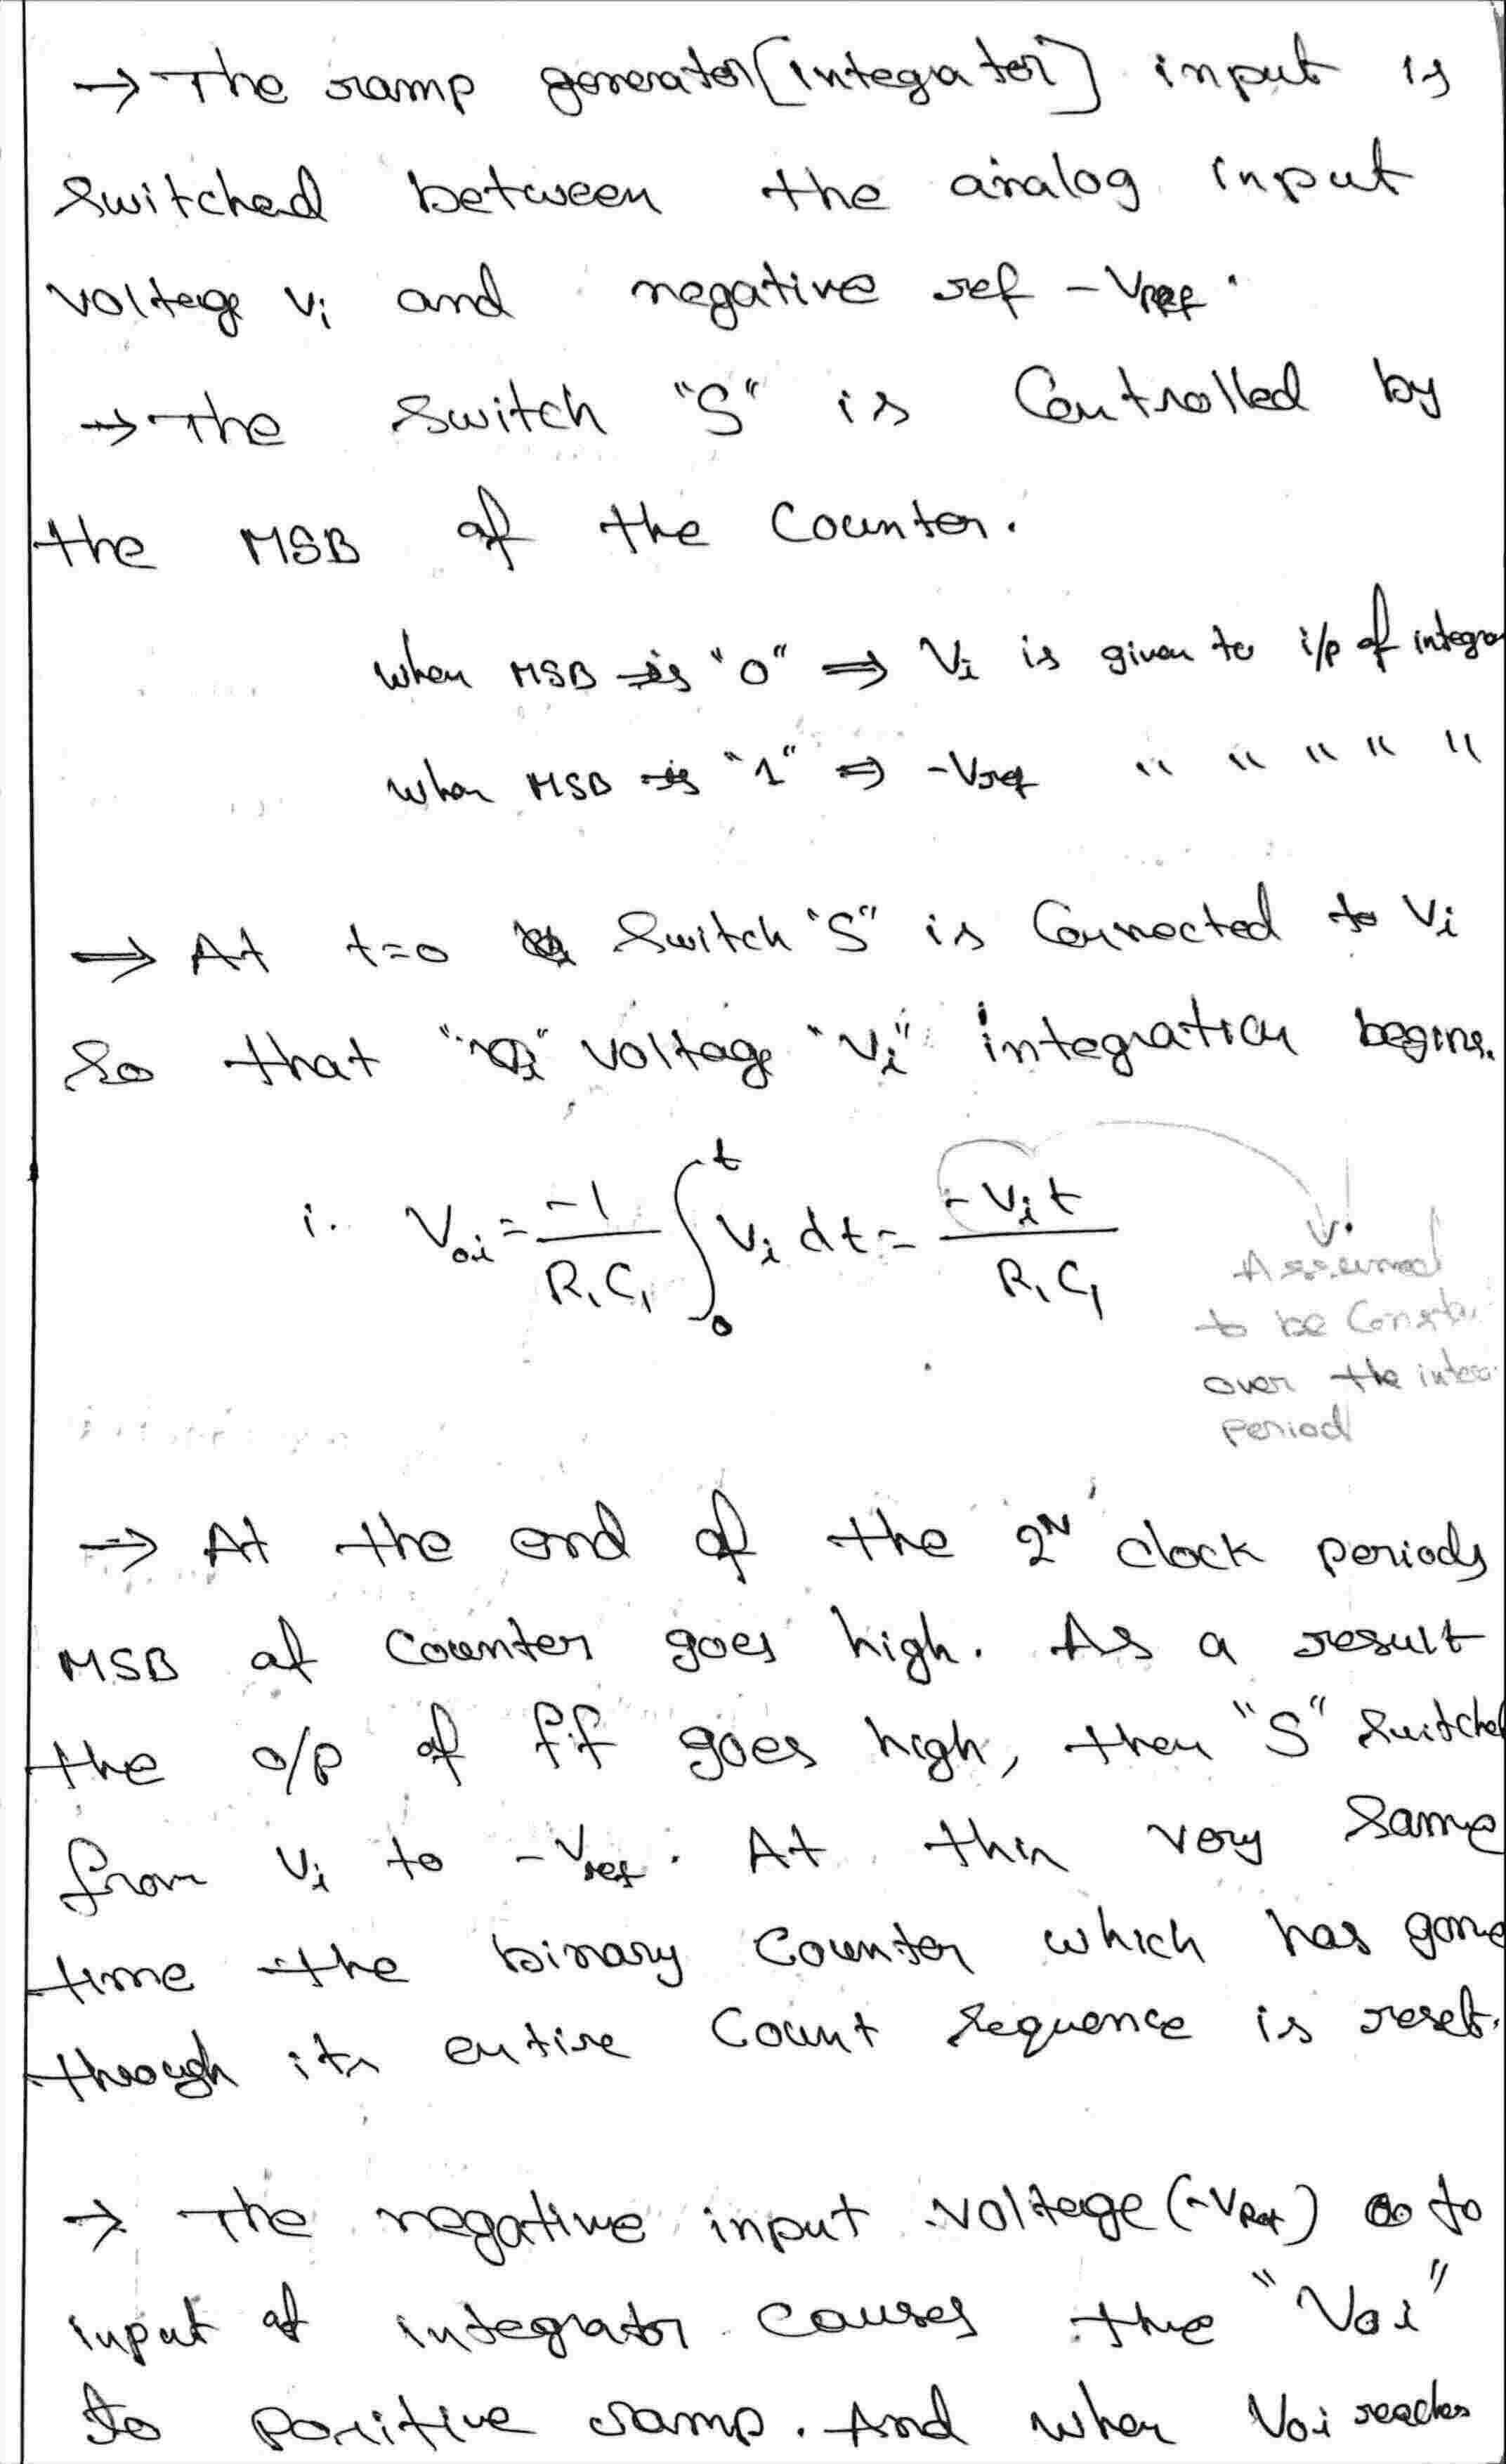 → The ramp generator [integrator] input is
switched between the analog input
voltage Vi and negative ref -VREF.
→ The switch "S" is Controlled by
the MSB of the Counter.
when MSB is "0" ⇒ Vi is given to i/p of integra
when MSB is "1" ⇒ -Vref " " " " "
⇒ At t=0 switch "S" is Connected to Vi
So that voltage "Vi" integration begins.
Voi = -1/R1C1 ∫0^t Vi dt = -Vit/R1C1
Assumed
to be Consta
over the integ
period
→ At the end of the 2^N clock periods
MSB of Counter goes high. As a result
the o/p of f.f goes high, then "S" switched
from Vi to -Vref. At this very same
time the binary Counter which has gone
through its entire Count sequence is reset.
→ The negative input voltage (-VRef) to
input of integrator causes the "Voi"
to positive ramp. And when Voi reaches